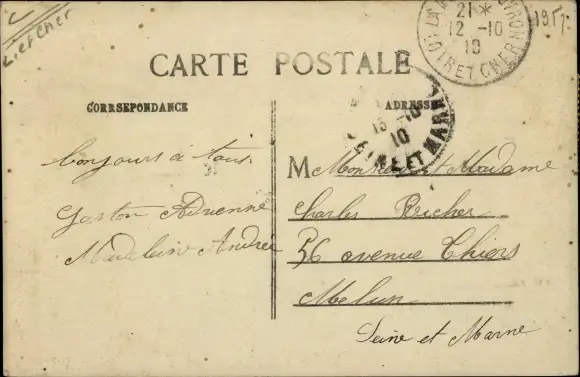 L et Cher
21 *
12 -10
10
LOIR ET CHER
1917
CARTE POSTALE
CORRSEPONDANCE
ADRESSE
13 -10
10
SEINE ET MARNE
Bonjours a tous
Gaston Adrienne
Madelaine Andrée
M Monsieur et Madame
Charles Richer
56 avenue Thiers
Melun
Seine et Marne